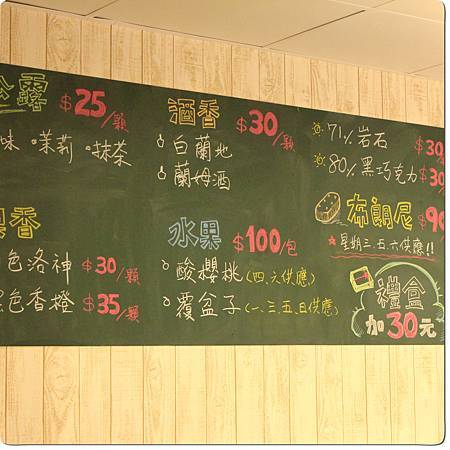 松露 $25/顆
味 •茉莉 •抹茶
果香
色洛神 $30/顆
色香橙 $35/顆
酒香 $30/顆
白蘭地
蘭姆酒
水果 $100/包
酸櫻桃(四、六供應)
覆盆子(一、三、五、日供應)
71%岩石 $30/
80%黑巧克力 $30
布朗尼 $90
★星期三、五、六供應!!
禮盒
加30元